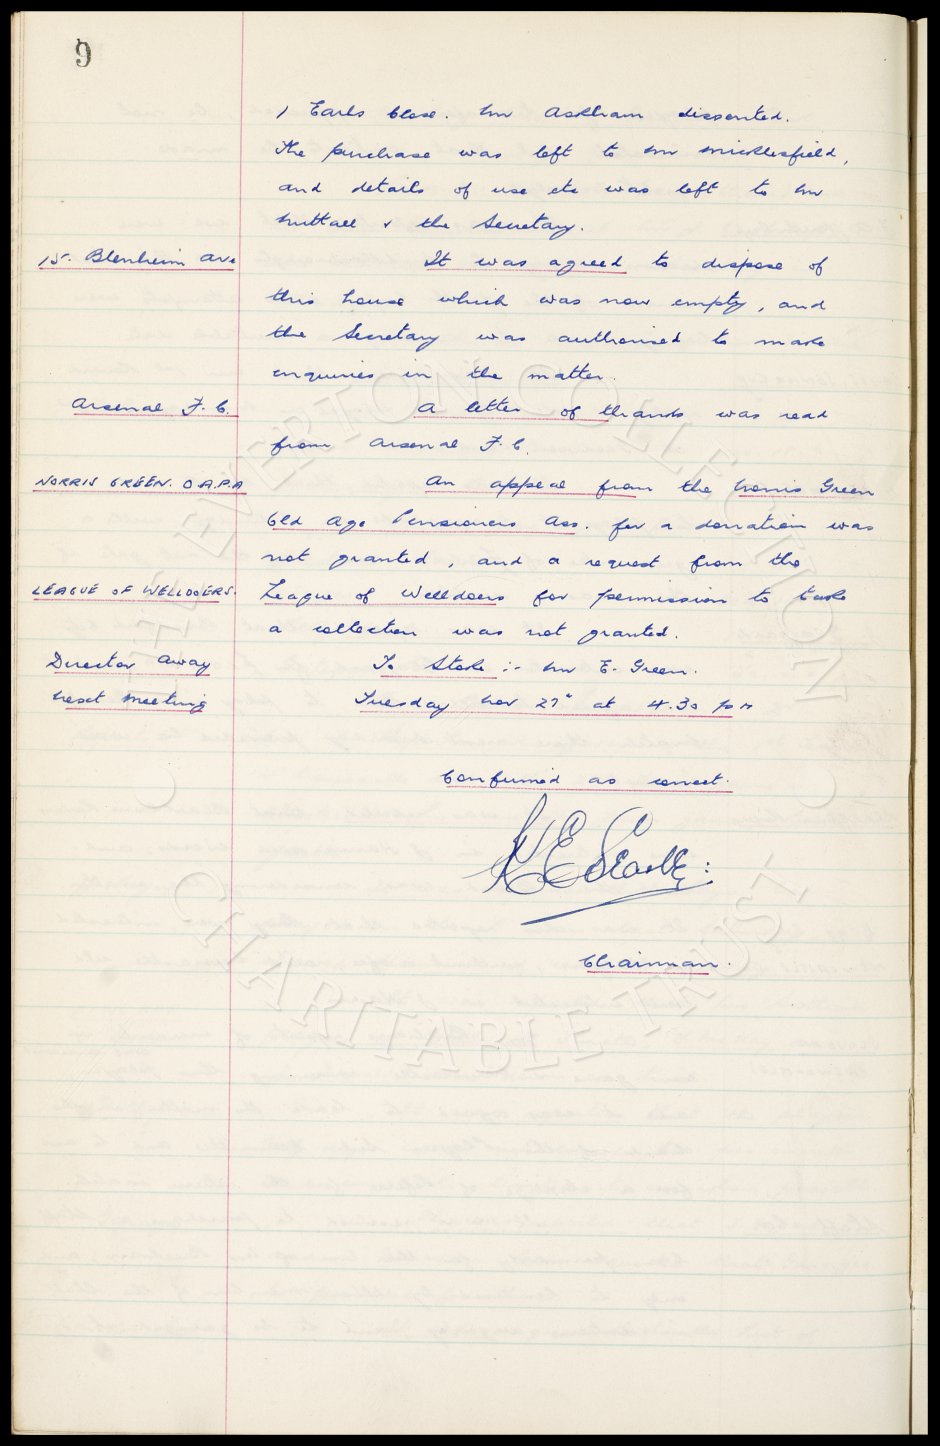 9
1 Earls Close. Mr Askham dissented.
The purchase was left to Mr Micklesfield,
and details of use etc was left to Mr
Nuttall & the Secretary.
15. Blenheim Ave It was agreed to dispose of
this house which was now empty, and
the Secretary was authorised to make
enquiries in the matter.
Arsenal F.C. A letter of thanks was read
from Arsenal F.C.
NORRIS GREEN. O.A.P.A An appeal from the Norris Green
Old Age Pensioners Ass. for a donation was
not granted, and a request from the
LEAGUE OF WELLDOERS. League of Welldoers for permission to take
a collection was not granted.
Director Away To Stoke :- Mr E. Green.
Next Meeting Tuesday Nov 27" at 4.30 pm
Confirmed as correct.
Chairman.
THE EVERTON COLLECTION
CHARITABLE TRUST